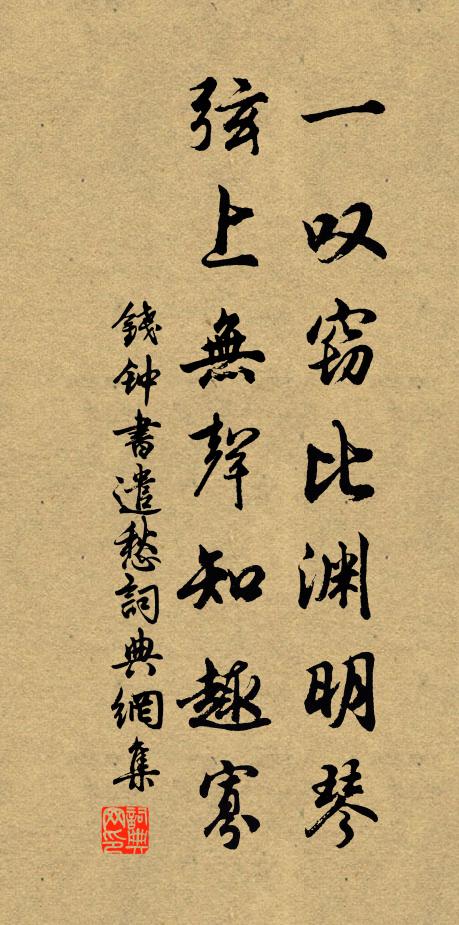 一叹窃比渊明琴
弦上無聲知趣寡
錢钟書遣愁詞典網集
詞典網印